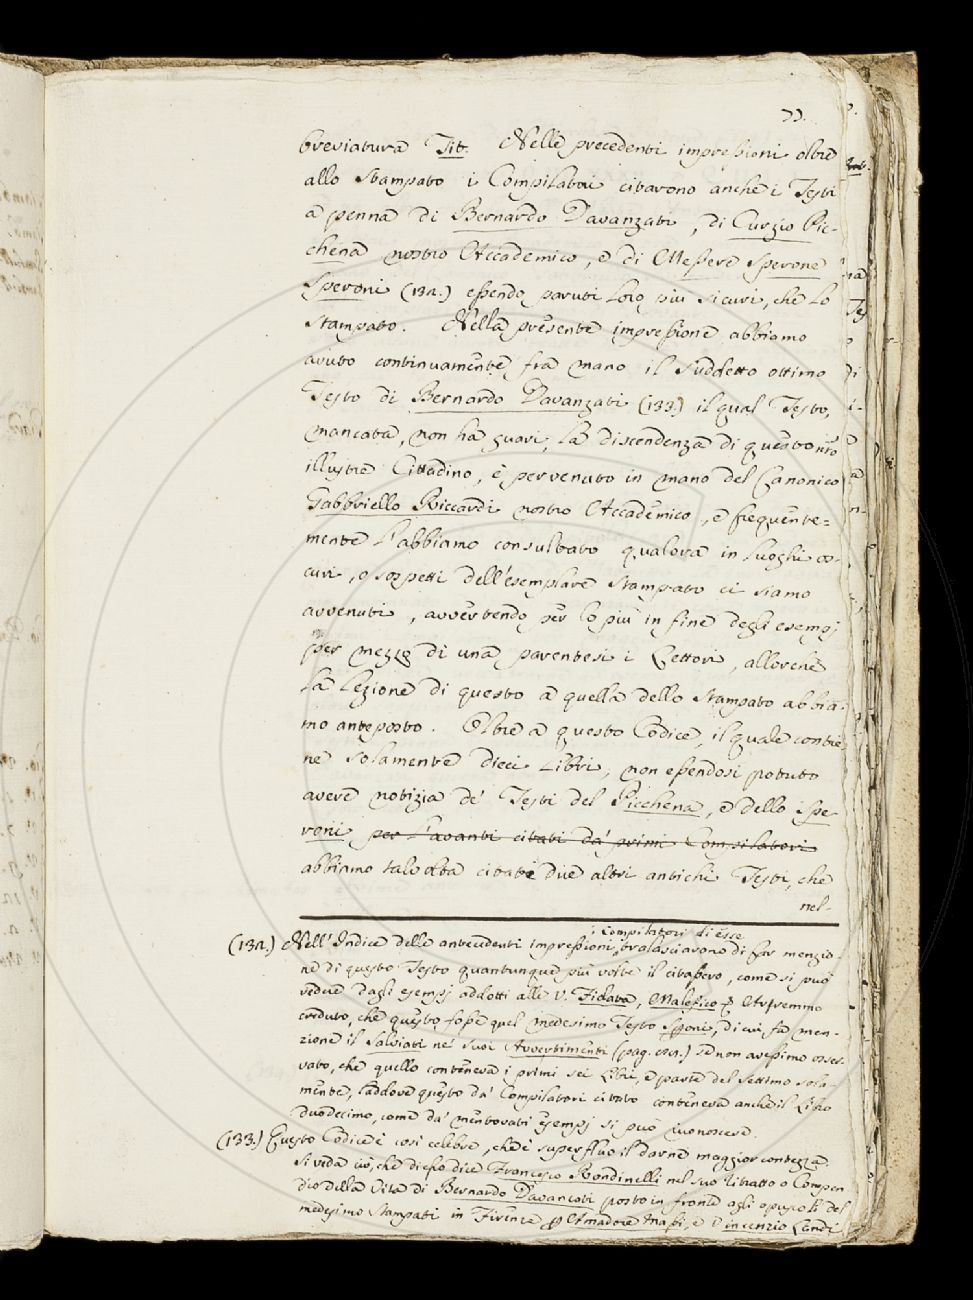 77.
breviatura Tit. Nelle precedenti impressioni oltre
allo Stampato i Compilatori citarono anche i Testi
a penna di Bernardo Davanzati, di Curzio Pic-
chena nostro Accademico, e di Messere Sperone
Speroni (132.) essendo paruti loro più sicuri, che lo
Stampato. Nella presente impressione abbiamo
avuto continuamente fra mano il suddetto ottimo
Testo di Bernardo Davanzati (133.) il qual Testo,
mancata, non ha guari, la discendenza di questo nro
illustre Cittadino, è pervenuto in mano del Canonico
Gabbriello Riccardi nostro Accademico, e frequente=
mente l'abbiamo consultato qualora in luoghi os-
curi, o sospetti dell'esemplare stampato ci siamo
avvenuti, avvertendo per lo più in fine degli esempj
per mezzo di una parentesi i Lettori, allorchè
la Lezione di questo a quella dello Stampato abbia-
mo anteposto. Oltre a questo Codice, il quale contie
ne solamente dieci Libri, non essendosi potuto
avere notizia de' Testi del Picchena, e dello Spe
roni per l'avanti citati da' primi Compilatori
abbiamo talvolta citati due altri antichi Testi, che
nel-
i Compilatori di esse
(132.) Nell'Indice delle antecedenti impressioni tralasciarono di far menzio-
ne di questo Testo quantunque più volte il citassero, come si può
vedere dagli esempj addotti alle V. Fidata, Malefico &c Avremmo
creduto, che questo fosse quel medesimo Testo Speroni, di cui fa men-
zione il Salviati ne' suoi Avvertimenti (pag. ) se non avessimo osser
vato, che quello conteneva i primi sei Libri, e parte del settimo sola-
mente, laddove questo da' Compilatori citato conteneva anche il Libro
duodecimo, come da' mentovati esempj si può riconoscere.
(133.) Questo Codice è così celebre, che è superfluo il darne maggior contezza.
Si veda ciò, che di esso dice Francesco Rondinelli nel suo Ritratto o Compen
dio della Vita di Bernardo Davanzati posto in fronte agli opuscoli del
medesimo Stampati in Firenze p Amadore Massi, e Vincenzio Landi